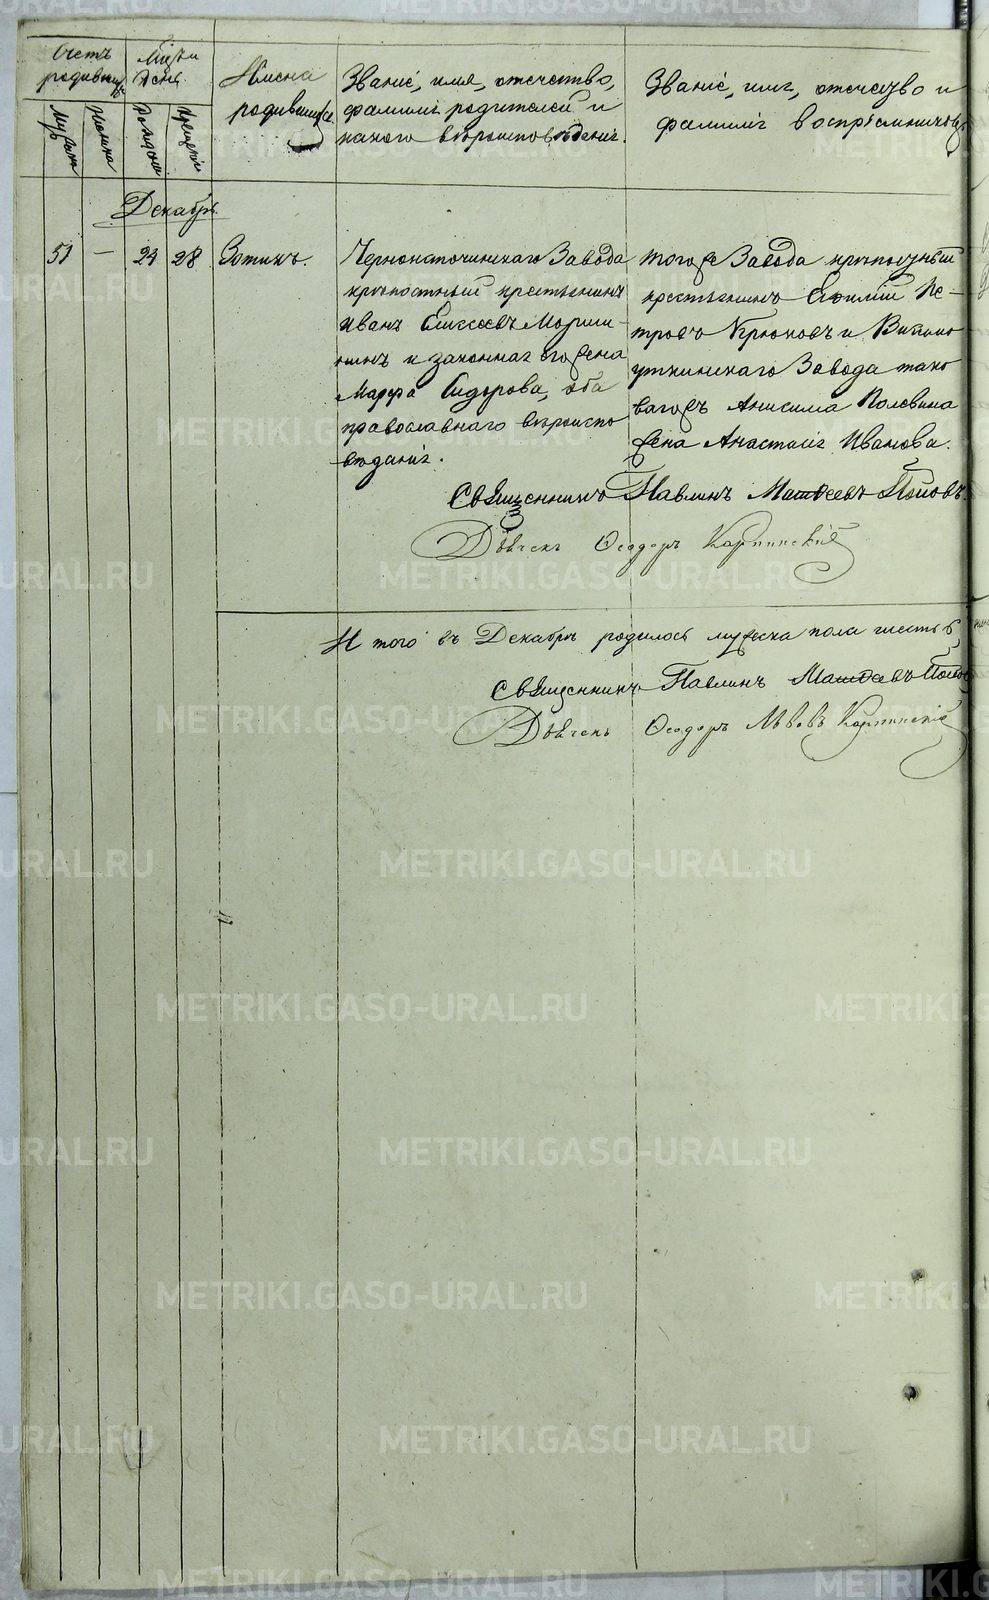 Счетъ родившихся
Мѣсяцъ и день
Имена родившихся
Званіе, имя, отечество,
фамилія родителей и
какого вѣроисповѣданія.
Званіе, имя, отечество и
фамилія воспріемниковъ
Мужска
Женска
Рожденія
Крещенія
Декабрь
51 — 24 28 Зотикъ.
Черноисточинскаго Завода
крѣпостный крестьянинъ
Иванъ Елисеевъ
и законная его жена
Марфа Сидорова, оба
православнаго вѣроиспо
вѣданія.
тогоже Завода крѣпостный
крестьянинъ Пе-
тровъ Крюковъ и Висимо
уткинскаго Завода тако
вагожъ Анисима Половина
жена Анастасія Иванова.
Священникъ Павлинъ Матѳеевъ Поповъ
Дьячекъ Ѳеодоръ Карпинскій
Итого въ Декабрѣ родилось мужеска пола шесть 6,
Священникъ Павлинъ Матѳеевъ Поповъ
Дьячекъ Ѳеодоръ Львовъ Карпинскій
METRIKI.GASO-URAL.RU